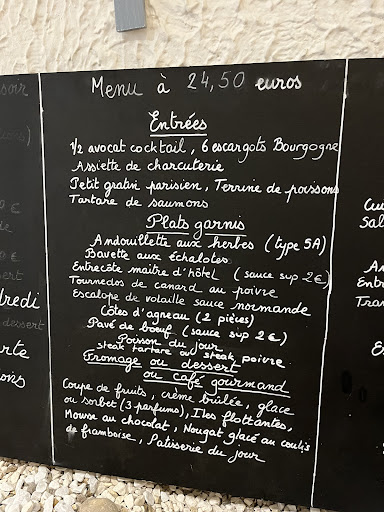 Menu à 24,50 euros
Entrées
1/2 avocat cocktail, 6 escargots Bourgogne
Assiette de charcuterie
Petit gratin parisien, Terrine de poissons
Tartare de saumons
Plats garnis
Andouillette aux herbes (type 5A)
Bavette aux échalotes
Entrecôte maitre d'hôtel (sauce sup 2€)
Tournedos de canard au poivre
Escalope de volaille sauce normande
Côtes d'agneau (2 pièces)
Pavé de bœuf (sauce sup 2€)
Poisson du jour
steak tartare ou steak poivre
Fromage ou dessert
ou café gourmand
Coupe de fruits, crème brûlée, glace
ou sorbet (3 parfums), Iles flottantes,
Mousse au chocolat, Nougat glacé au coulis
de framboise, Patisserie du jour